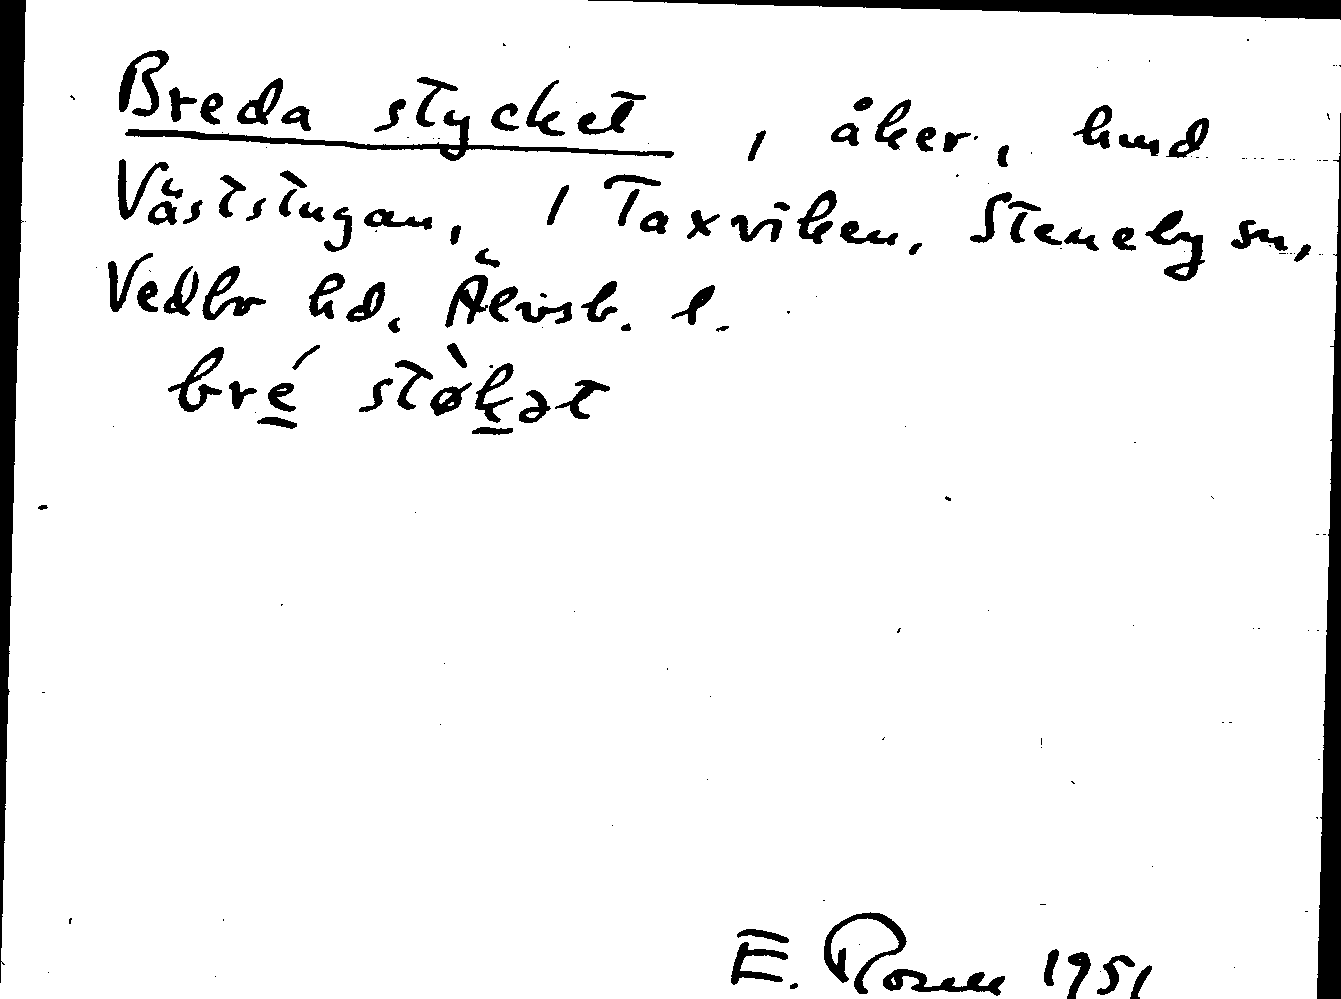 Breda stycket, åker, hmd
Väststugan, 1 Taxviken, Steneby sn,
Vedbo hd, Älvsb. l.
bré stø̀kət
E. Rosell 1951